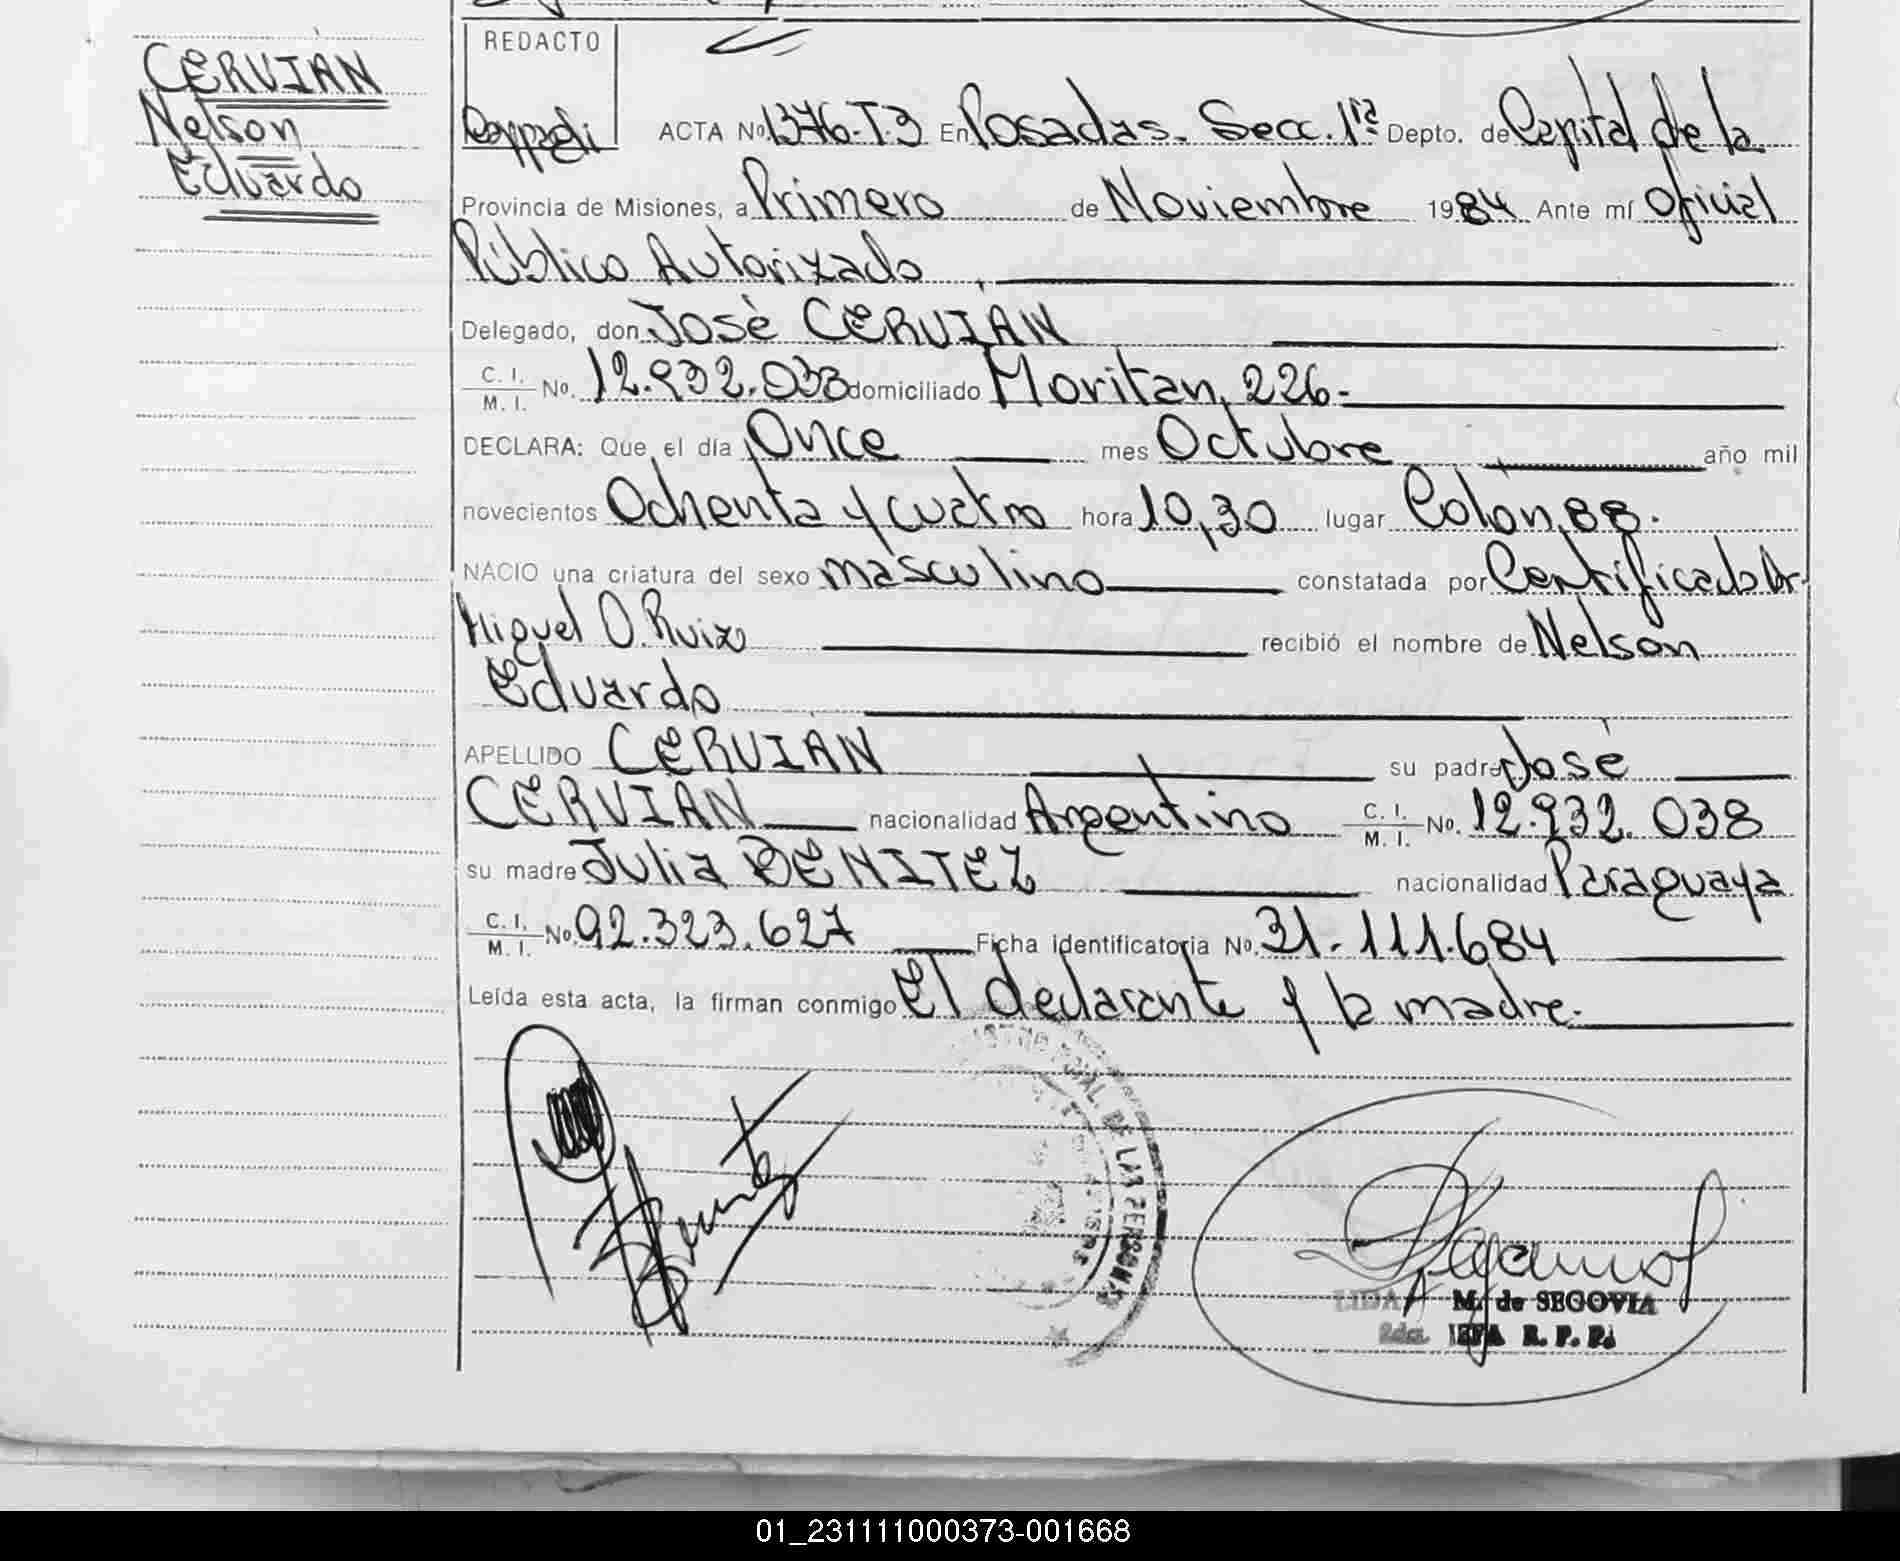 CERVIAN
Nelson
Eduardo
REDACTO
ACTA No. 1376-T.3 En Posadas. Secc. 1ra Depto. de Capital de la
Provincia de Misiones, a Primero de Noviembre 1984 Ante mí Oficial
Público Autorizado,
Delegado, don José CERVIAN
C. I. / M. I. No. 12.932.038 domiciliado Moritan, 226.-
DECLARA: Que el día Once mes Octubre año mil
novecientos Ochenta y cuatro hora 10,30 lugar Colón, 88.
NACIO una criatura del sexo masculino constatada por Certificado Dr.
Miguel O. Ruiz recibió el nombre de Nelson
Eduardo
APELLIDO CERVIAN su padre José
CERVIAN nacionalidad Argentino C. I. / M. I. No. 12.932.038
su madre Julia BENITEZ nacionalidad Paraguaya
C. I. / M. I. No. 92.323.627 Ficha identificatoria No. 31-111.684
Leída esta acta, la firman conmigo El declarante y la madre.
DE LAS PERSONAS
LIDA M. de SEGOVIA
2da. JEFA R. P. P.
01_231111000373-001668